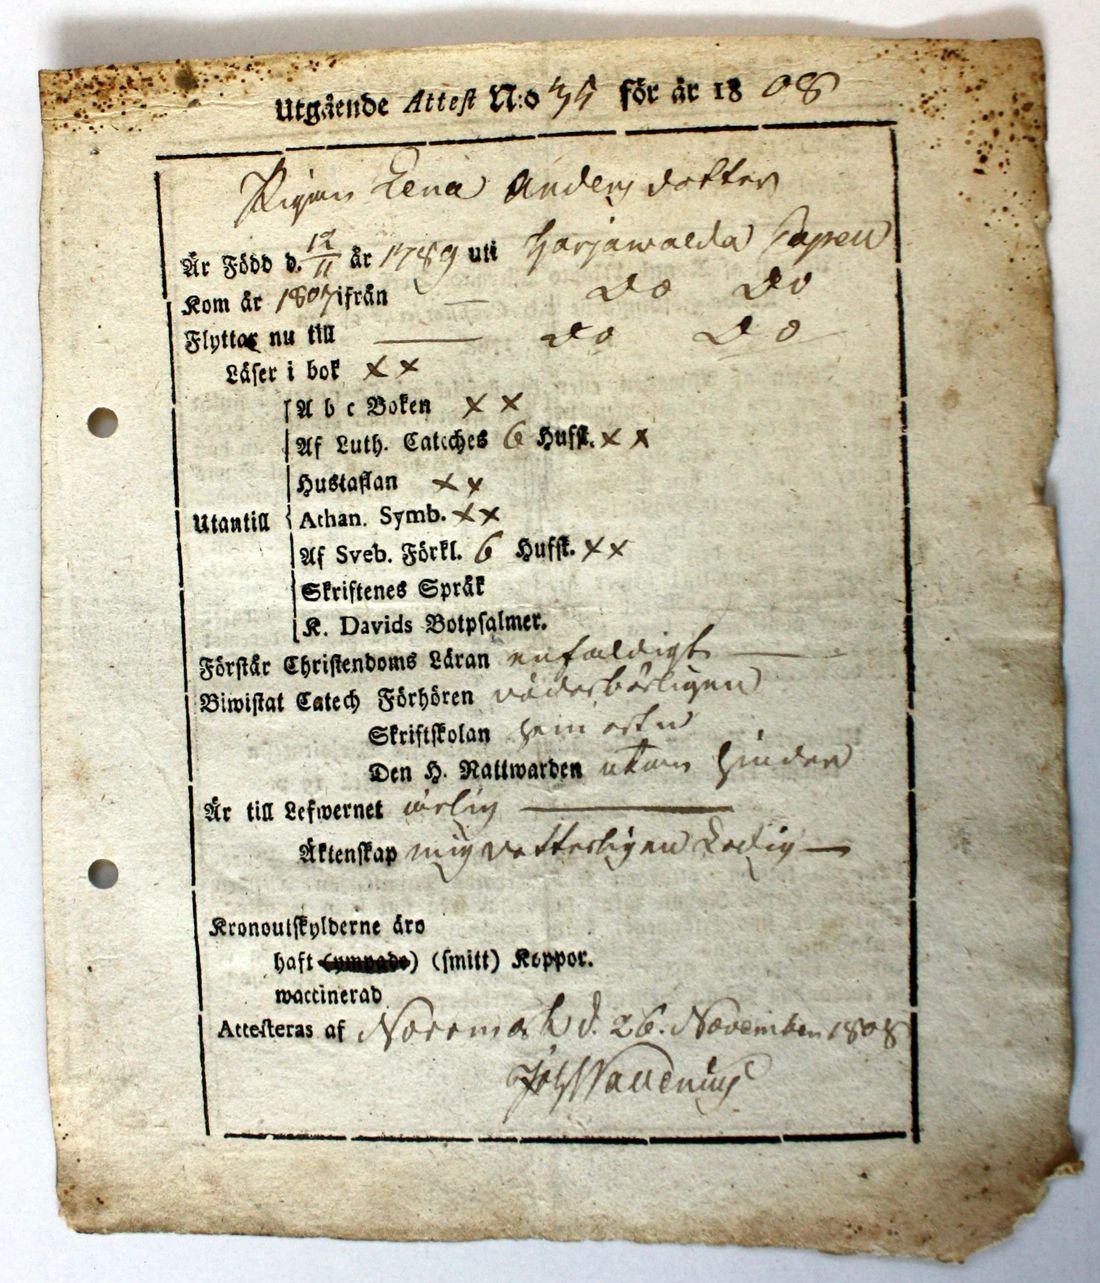 Utgående Attest N:o 35 för år 1808
Pigan Lena Andersdotter
Är Född d. 12/11 år 1789 uti Harjawalda Capell
Kom år 1807 ifrån — Do Do
Flyttar nu till — Do Do
Läser i bok xx
A b c Boken xx
Af Luth. Cateches 6 Hufst. xx
Hustaflan xx
Utantill Athan. Symb. xx
Af Sveb. Förkl. 6 Hufst. xx
Skriftenes Språk
K. Davids Botpsalmer.
Förstår Christendoms Läran enfaldigt —
Biwistat Catech Förhören wederbörligen
Skriftskolan
Den H. Nattwarden utan hinder
Är till Lefwernet ärlig —
Äktenskap Ledig —
Kronoutskylderne äro
haft (ympade) (smitt) Koppor.
waccinerad
Attesteras af Norrmark d. 26. November 1808
Joh Wallenius